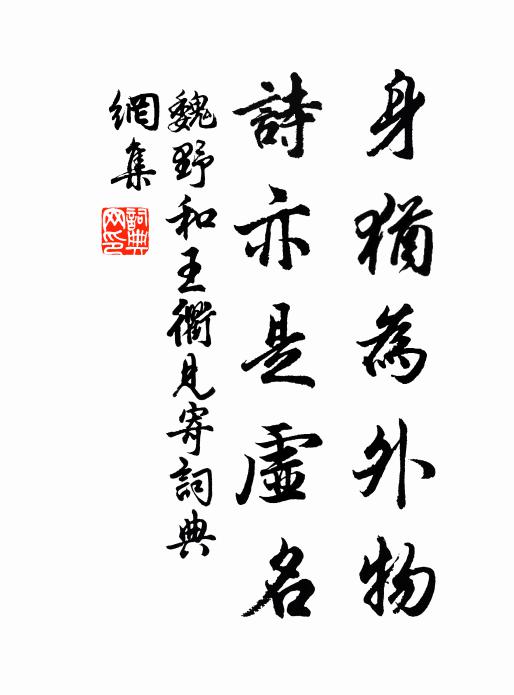 身猶為外物
詩亦是虛名
魏野和王衢見寄詞典
網集
詞典
网印